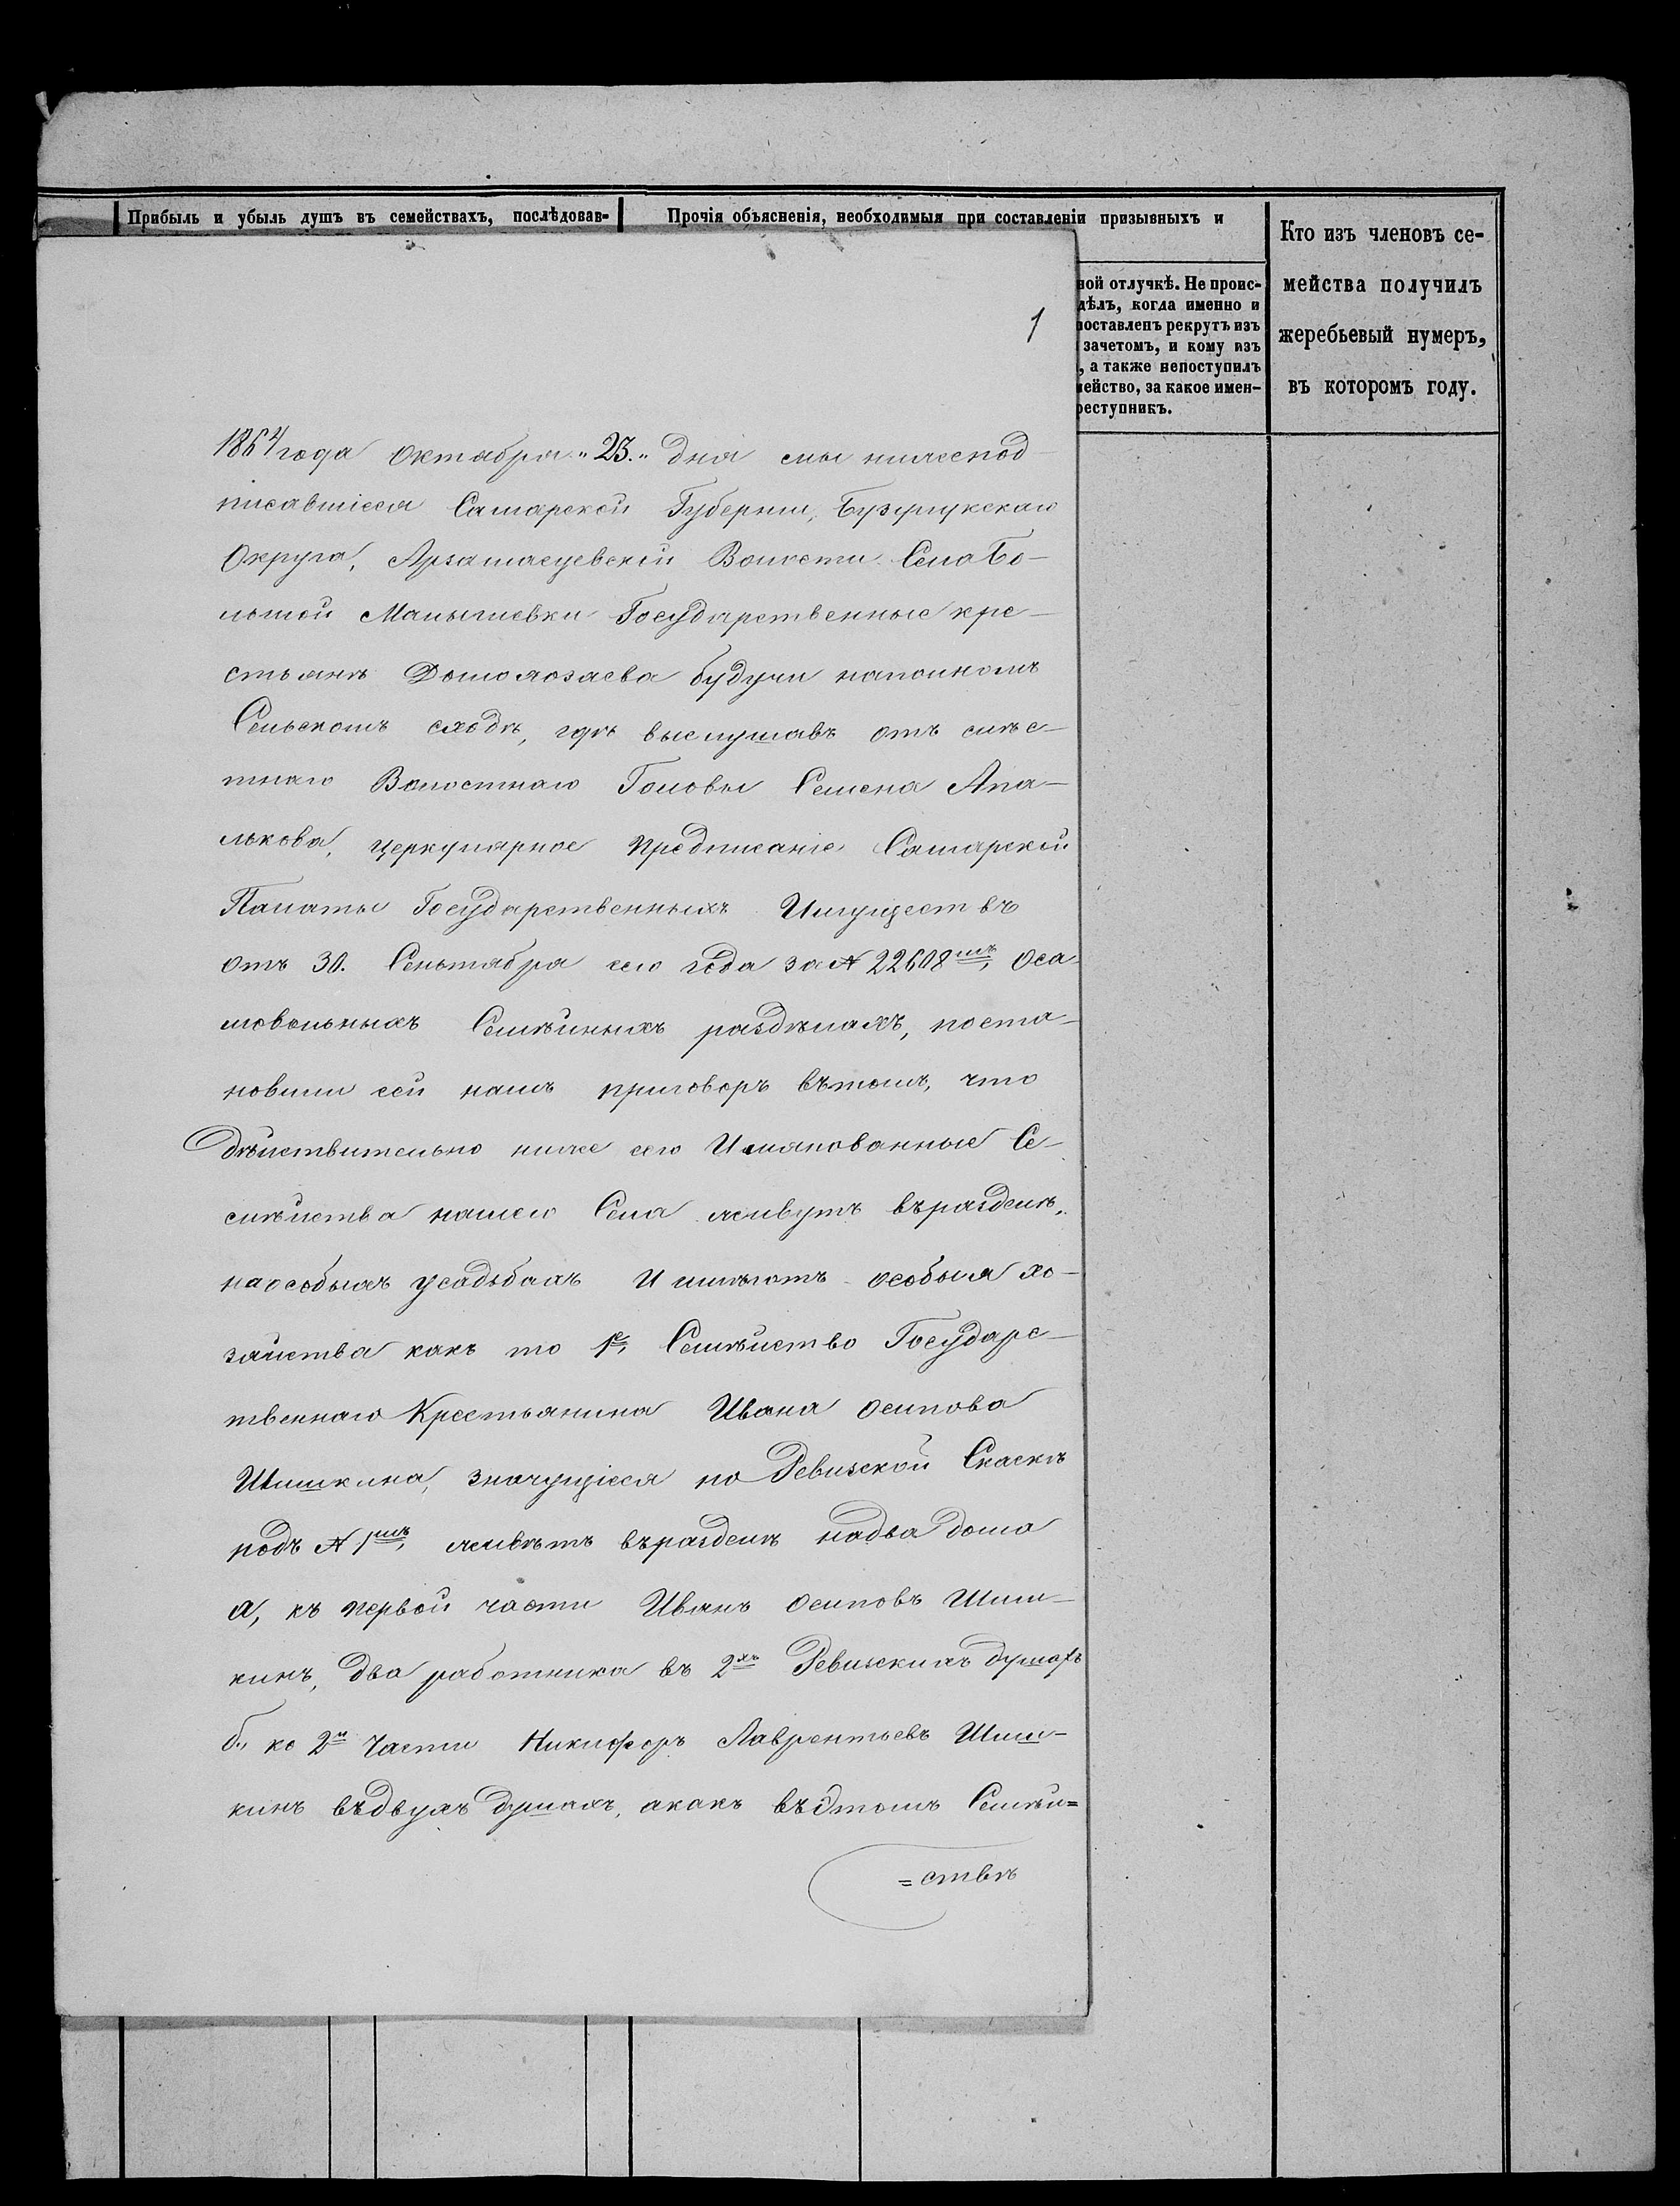 Прибыль и убыль душъ въ семействахъ, послѣдовав-
Прочія объясненія, необходимыя при составленіи призывныхъ и
ной отлучкѣ. Не проис-
дѣлъ, когда именно и
поставленъ рекрутъ изъ
зачетомъ, и кому изъ
, а также непоступилъ
мейство, за какое имен-
реступникъ.
Кто изъ членовъ се-
мейства получилъ
жеребьевый нумеръ,
въ которомъ году.
1
1864 года Октября „23.„ дня мы нижепод-
писавшіеся Самарской Губерніи, Бузулукскаго
Округа, Арзамасцевской Волости Села Бо-
льшой Малышевки Государственные кре-
стьянѣ Домохозаева будучи наполномъ
Сельскомъ сходѣ, гдѣ выслушавъ отъ мѣс-
тнаго Волостнаго Головы Семена Апа-
лькова, церкулярное предписаніе Самарской
Палаты Государственныхъ Имуществъ
отъ 30. Сеньтября сего года за № 22608мъ, Оса-
мовольныхъ Семѣйныхъ раздѣлахъ, поста-
новили сей нашъ приговоръ вътомъ, что
Дѣйствительно ниже сего Имянованные Се-
мѣйства нашего Села живутъ въразделѣ,
наособыхъ усадьбахъ И имѣютъ особыя хо-
зайства какъ то 1е, Семѣйство Государс-
твеннаго Крестьянина Ивана Осипова
Шишкина, значущіеся по Ревизской Скаскѣ
подъ № 1мъ, живѣтъ въразделѣ надва дома
а, къ первой части Иванъ Осиповъ Шиш-
кинъ, два работника въ 2хъ Ревизскихъ душахъ
б., ко 2й Части Никифоръ Лаврентьевъ Шиш-
кинъ въдвухъ душахъ, акакъ въэтомъ Семѣй=
=ствѣ